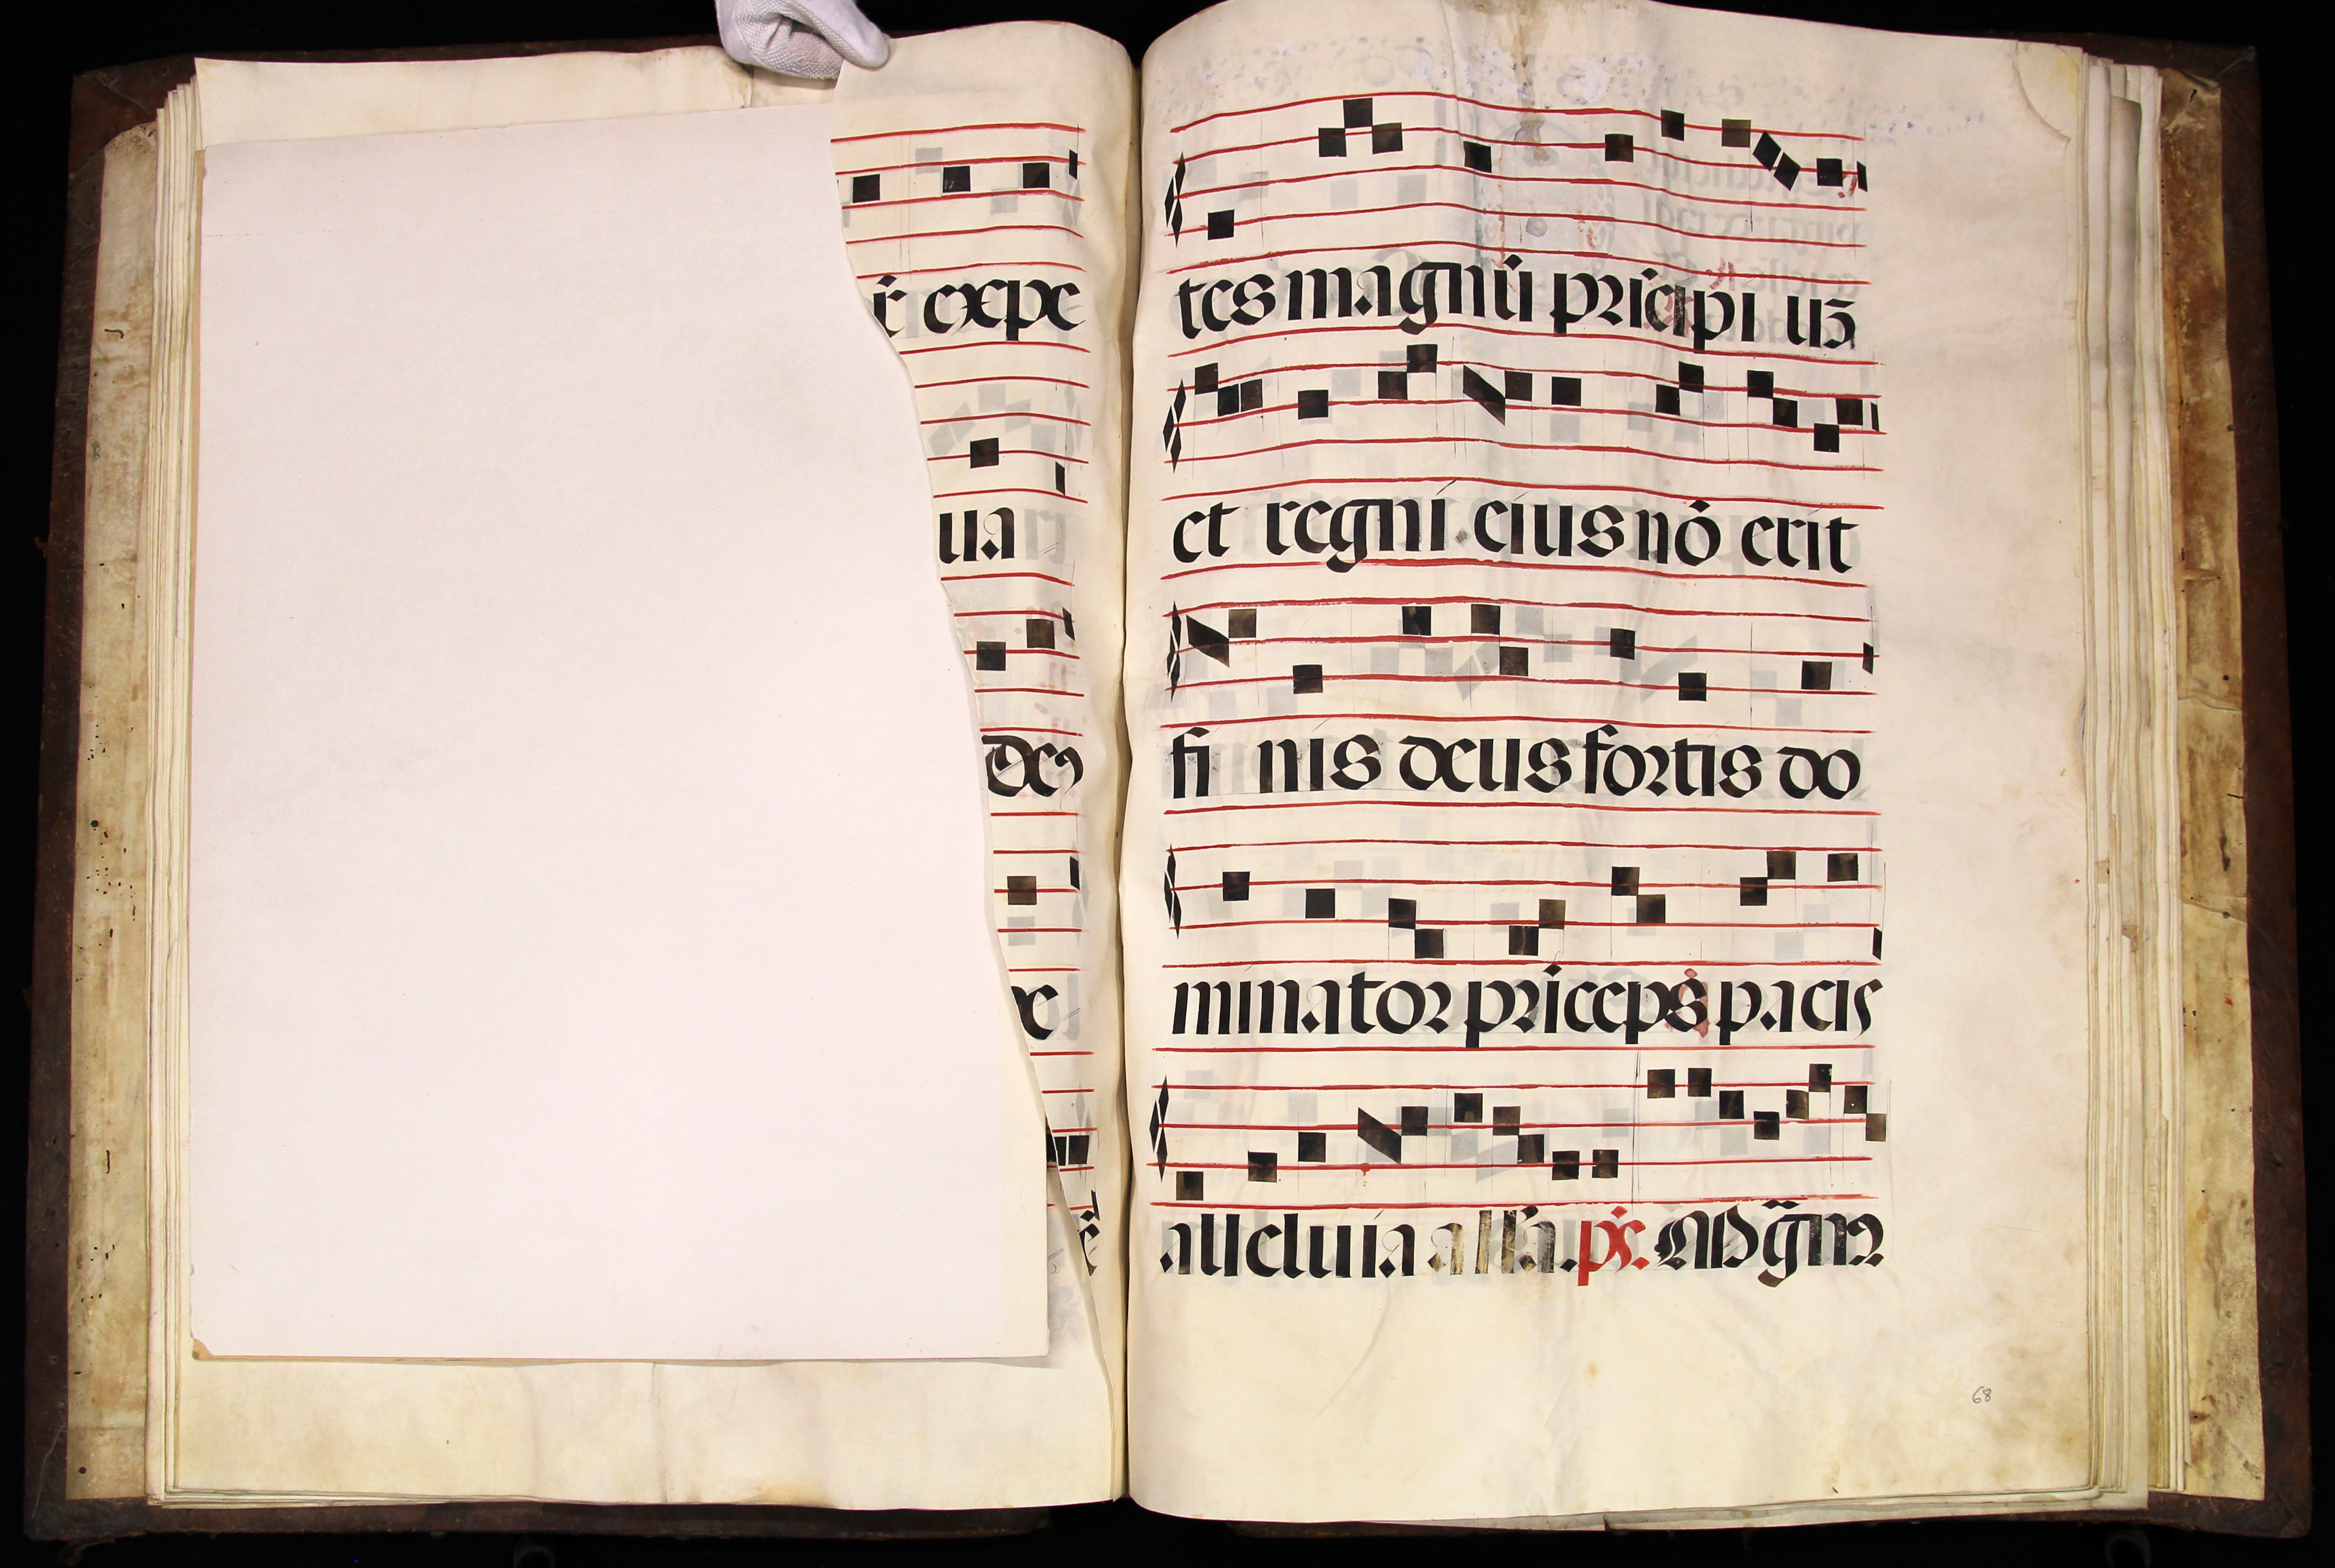 expe
ua
tes magnū prīcipi uʒ
et regni eius nō erit
fi nis deus fortis do
minator prīceps pacis
alleluia all'a. ps. Mag̃m
68